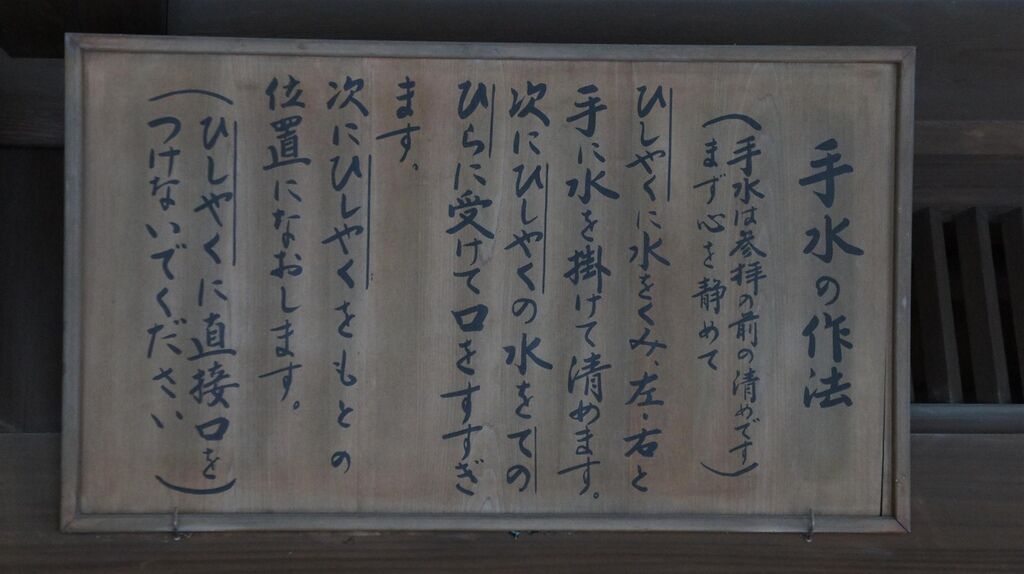 手水の作法
(手水は参拝の前の清めです
まず心を静めて)
ひしゃくに水をくみ、左・右と
手に水を掛けて清めます。
次にひしゃくの水をての
ひらに受けて口をすすぎ
ます。
次にひしゃくをもとの
位置になおします。
(ひしゃくに直接口を
つけないでください)